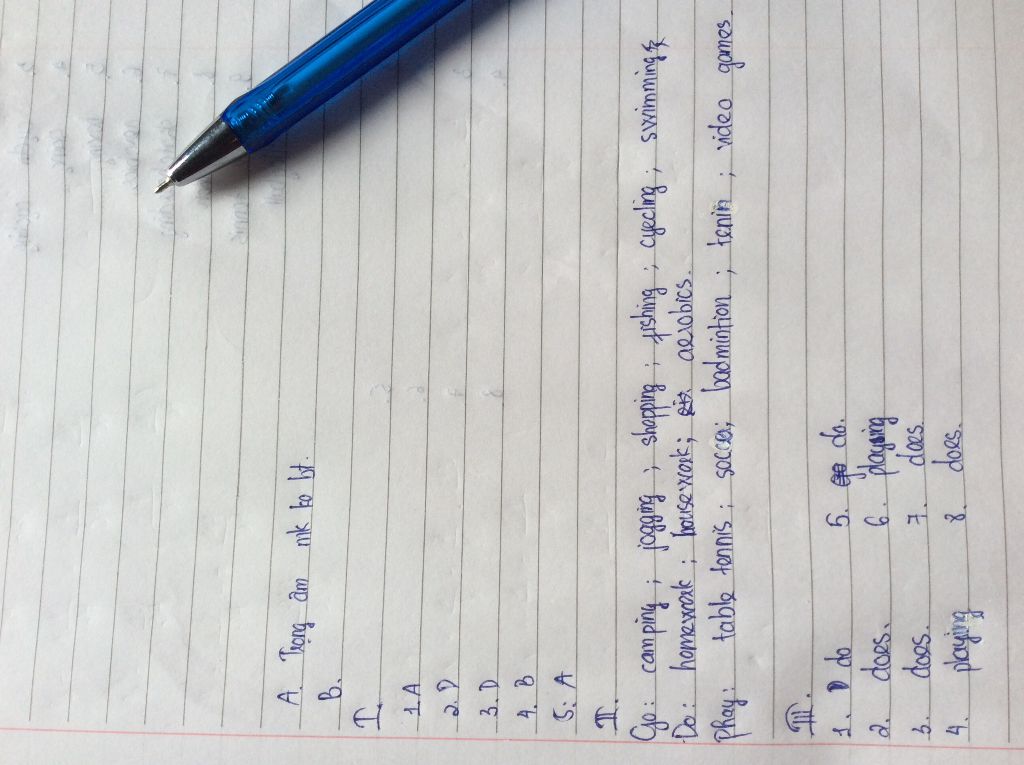 A. Trọng âm mk ko bt.
B.
I.
1. A
2. D
3. D
4. B
5. A
II.
Go: camping ; jogging ; shopping ; fishing ; cyecling ; swimming
Do: homework ; housework ; aerobics.
Play: table tennis ; soccer; badmintion ; tenin ; video games.
III.
1. do 5. do.
2. does. 6. playing
3. does. 7. does.
4. playing 8. does.